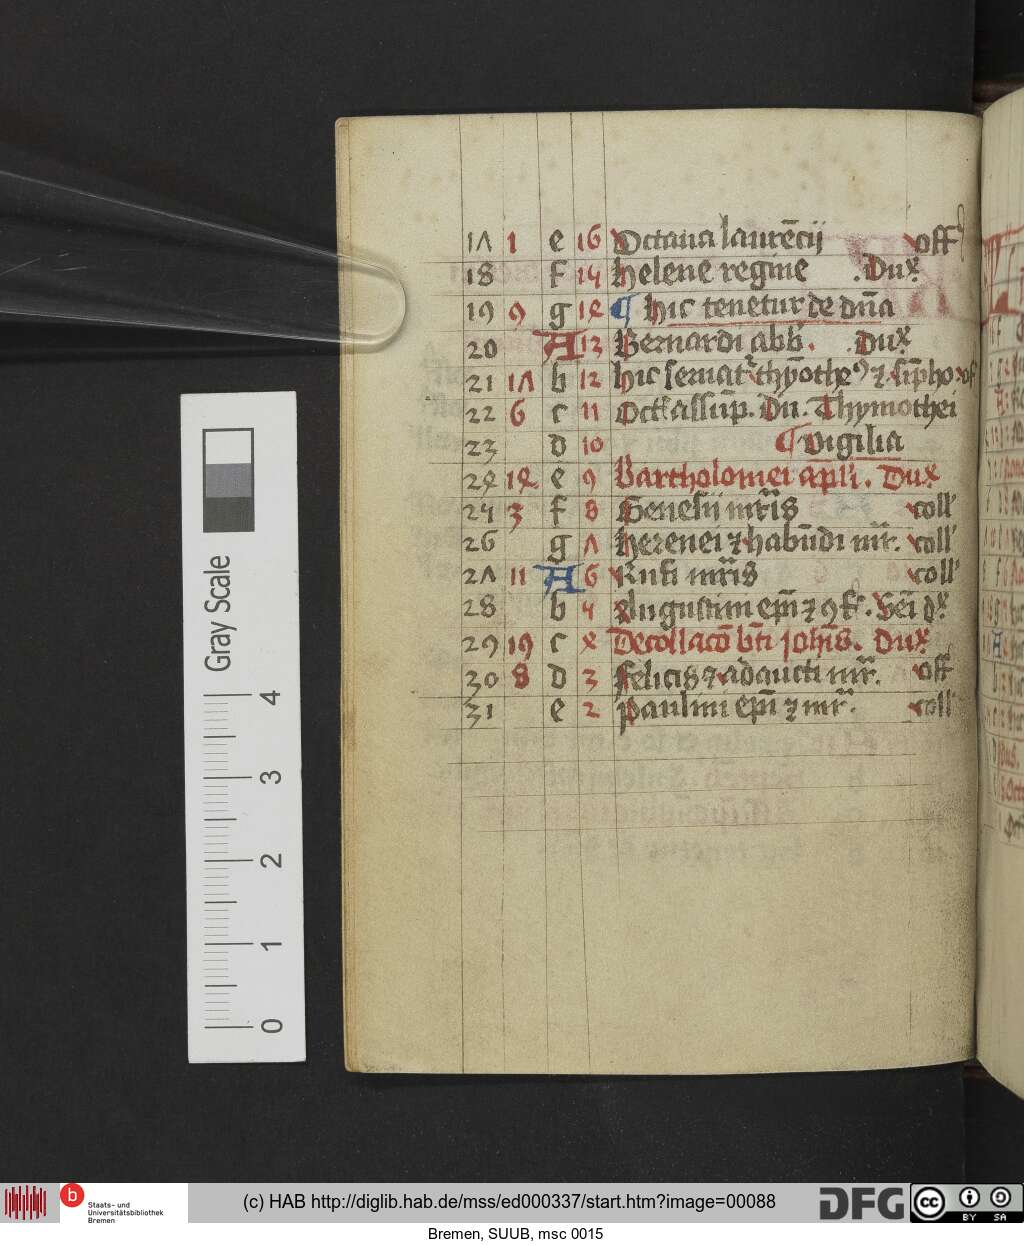 17 1 e 16 Octaua laurēcij off
18 f 15 Helene regine . Dux
19 9 g 14 ¶ hic tenetur de dn̄a
20 A 13 Bernardi abb. . Dux
21 17 b 12 hic seruat
22 6 c 11 Oct assūp. Dn. Thymothei
23 d 10 ¶ Vigilia
24 14 e 9 Bartholomei apli. Dux
25 3 f 8 Genesij mr̄is coll
26 g 7 Herenei ⁊ habūdi mr̄. coll
27 11 A 6 Rufi mr̄is coll
28 b 5 Augustini ep̄i ⁊ ꝯf.
29 19 c 4 Decollacō bt̄i joh̄is. Dux
30 8 d 3 Felicis ⁊ adaucti mr̄. off
31 e 2 Paulini ep̄i ⁊ mr̄. coll
Gray Scale
4
3
2
1
0
b Staats- und
Universitätsbibliothek
Bremen
(c) HAB http://diglib.hab.de/mss/ed000337/start.htm?image=00088
DFG
cc BY SA
Bremen, SUUB, msc 0015